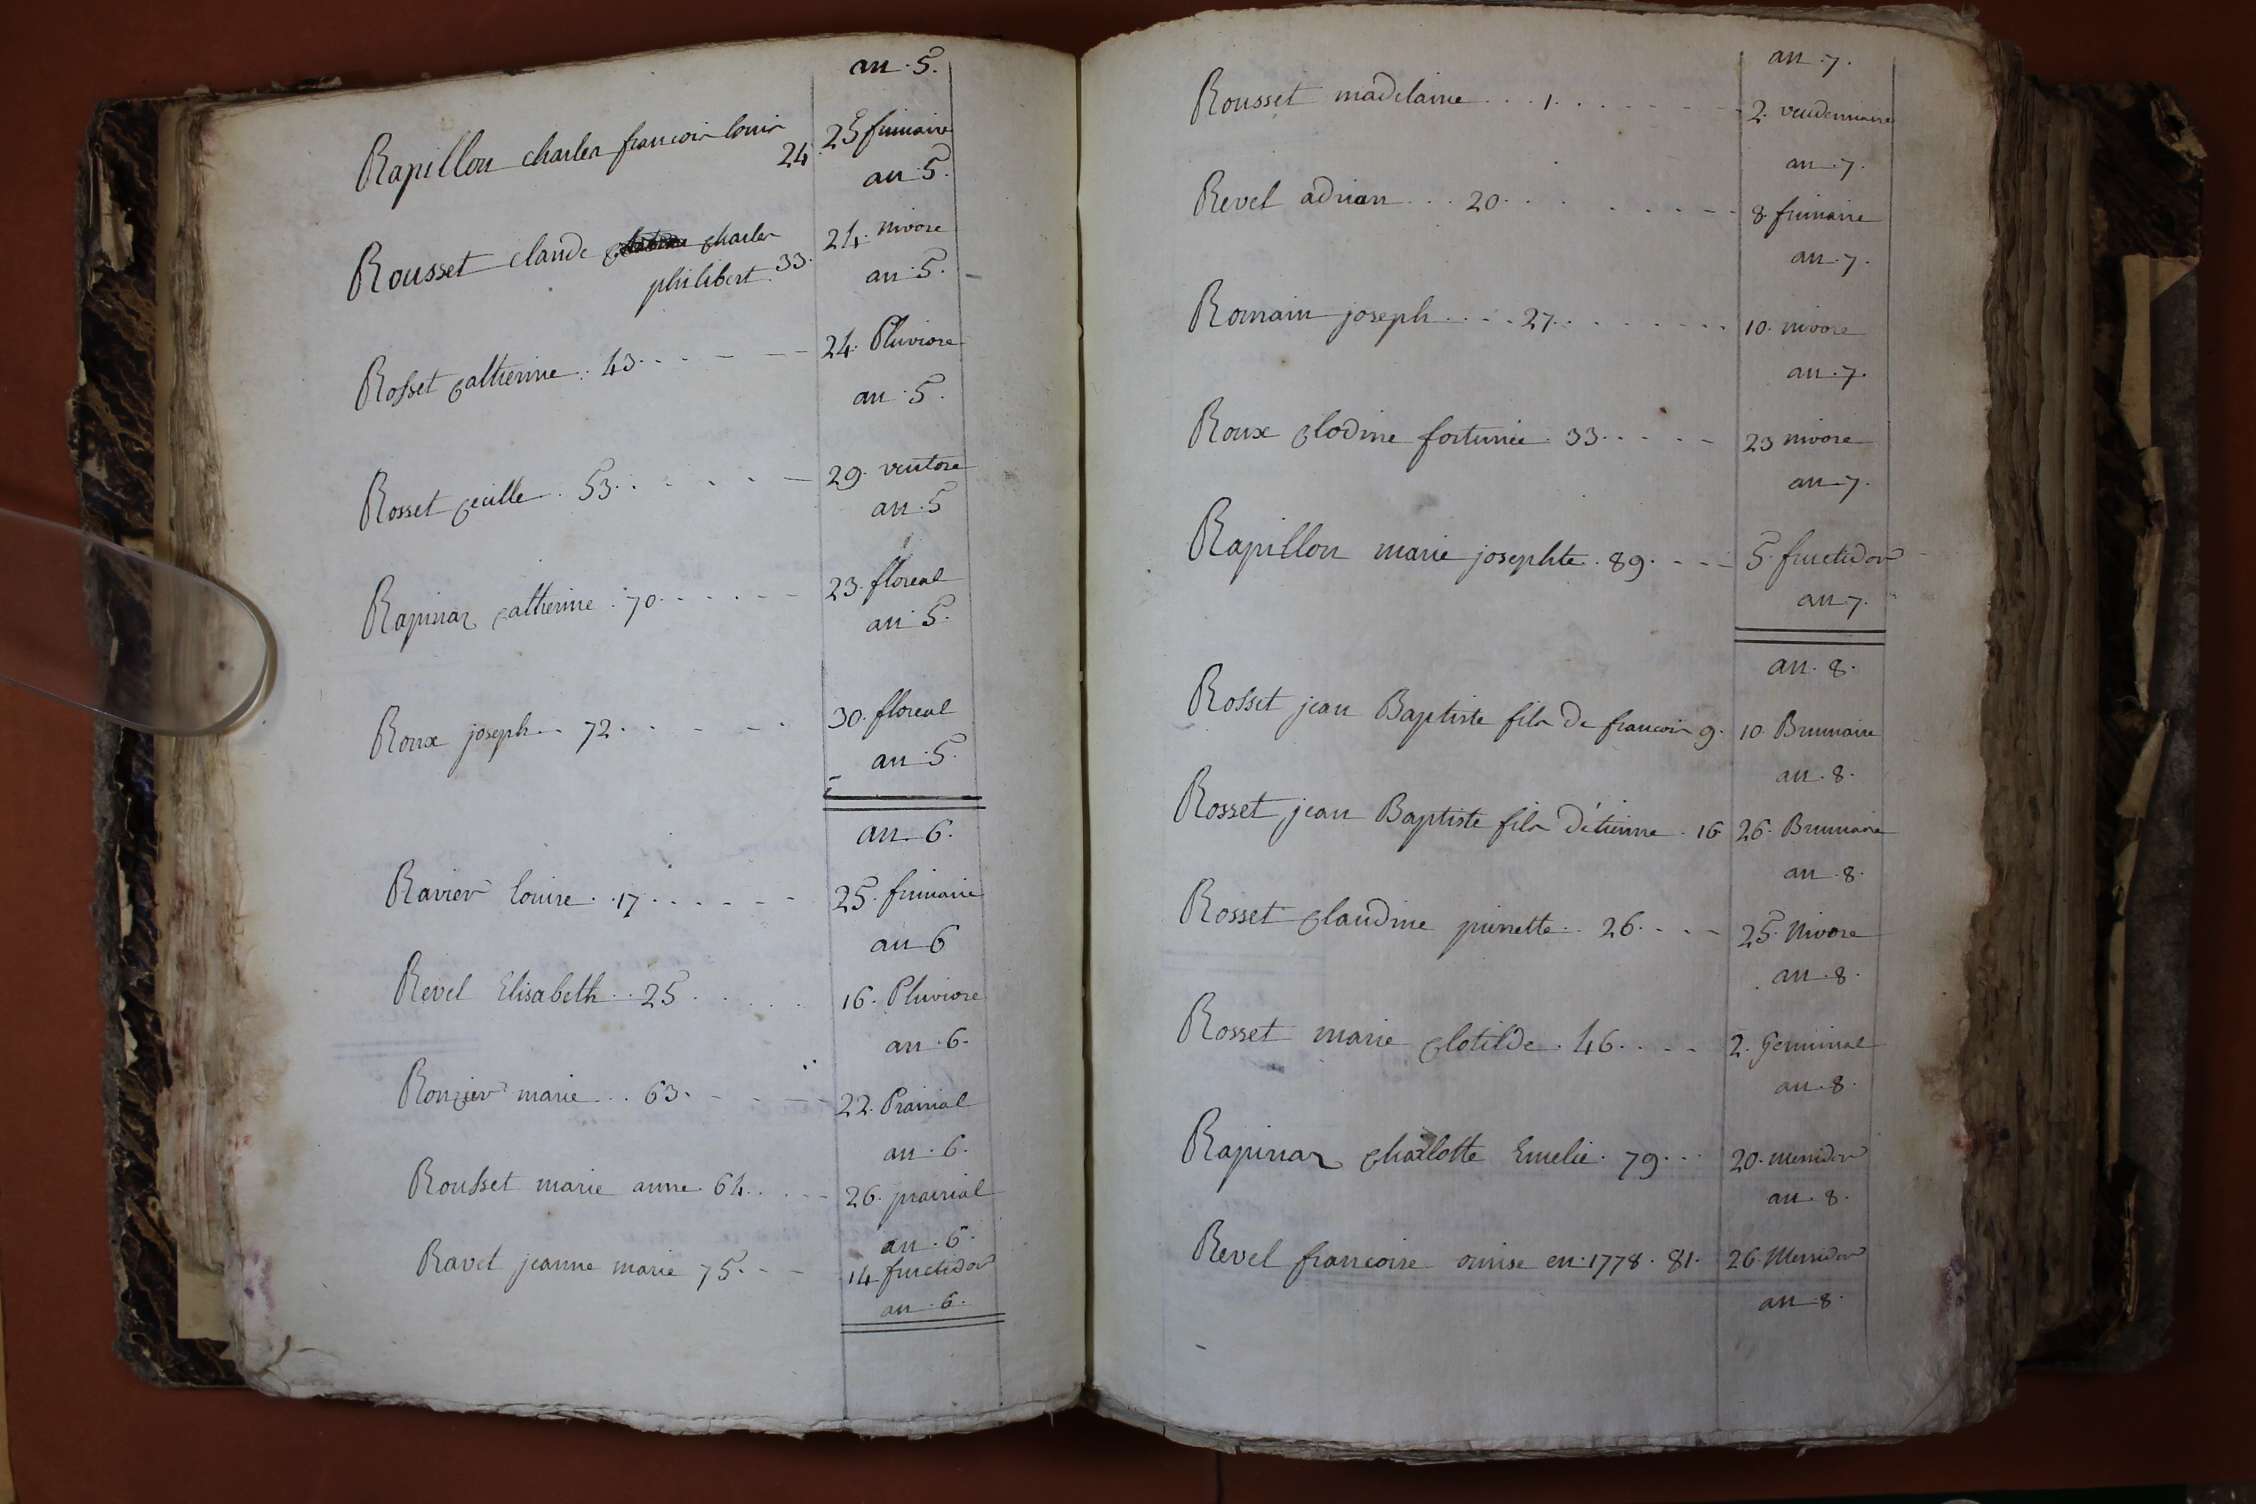 an . 5.
Rapillon charles francois louis
24. 25 frimaire
an . 5.
Rousset claude charles
philibert . 33. 24. nivose
an . 5.
Rosset catherine . 43. 24. Pluviose
an . 5.
Rosset cecille . 53. 29. ventose
an . 5
Rapinaz catherine . 70. 23. floreal
an . 5.
Roux joseph . 72. 30. floreal
an . 5.
an . 6.
Ravier louise . 17. 25. frimaire
an 6
Revel Elisabeth . 25. 16. Pluviose
an . 6.
Ronzier marie . 63. 22. Prairial
an . 6.
Rousset marie anne . 64. 26. prairial
an . 6.
Ravet jeanne marie 75. 14 fructidor
an . 6.
an . 7.
Rousset madelaine . 1. 2. vendemiaire
an . 7.
Revel adrian . 20. 8. frimaire
an . 7.
Romain joseph . 27. 10. nivose
an . 7.
Roux clodine fortunée . 33. 23 nivose
an . 7.
Rapillon marie josephte . 89. 5. fructidor
an . 7.
an . 8.
Rosset jean Baptiste fils de francois 9. 10. Brumaire
an . 8.
Rosset jean Baptiste fils d'étienne . 16 26. Brumaire
an . 8.
Rosset claudine pierrette . 26. 25. Nivose
an . 8.
Rosset marie clotilde . 46. 2. Germinal
an . 8.
Rapinaz charlotte Emelie . 79. 20. messidor
an . 8.
Revel francoise omise en 1778 . 81. 26. Messidor
an . 8.